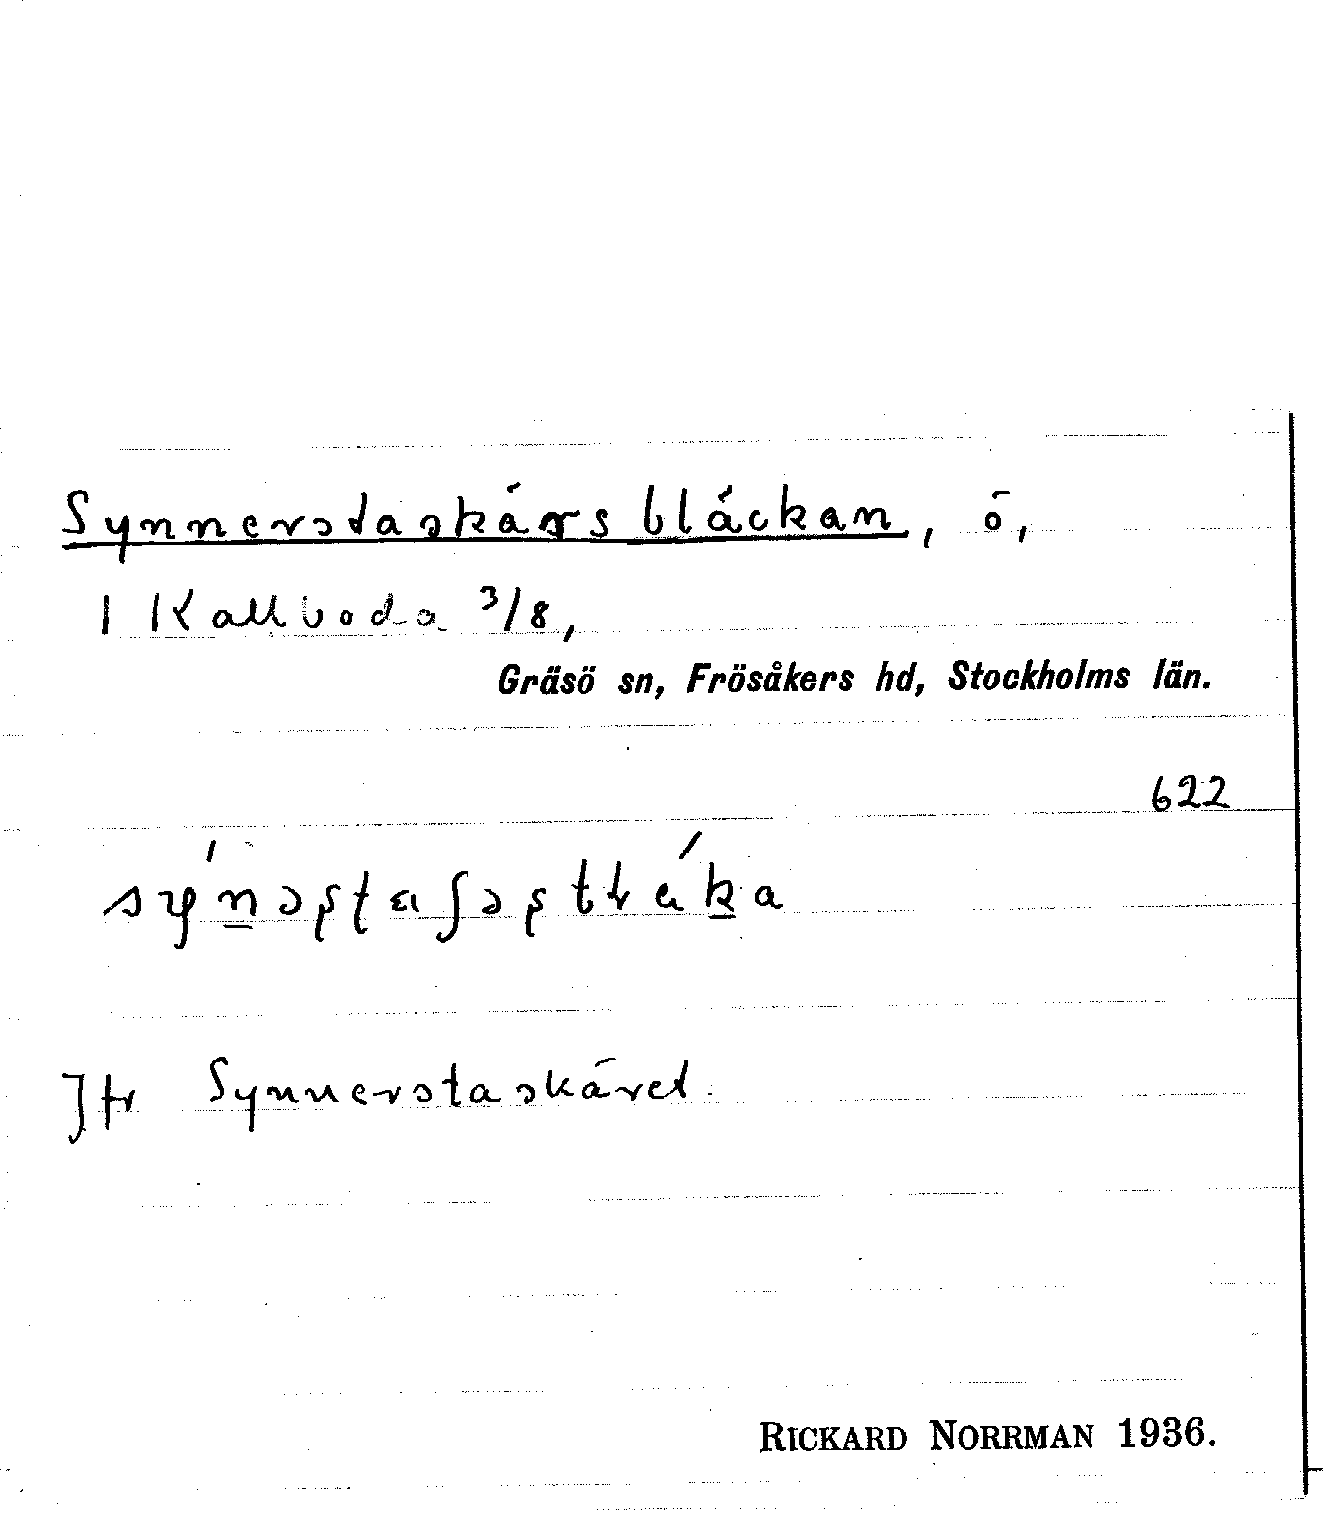 Synnerstaskärs bläckan, ö,
1 Kallboda 3/8,
Gräsö sn, Frösåkers hd, Stockholms län.
622
Jfr Synnerstaskäret.
RICKARD NORRMAN 1936.